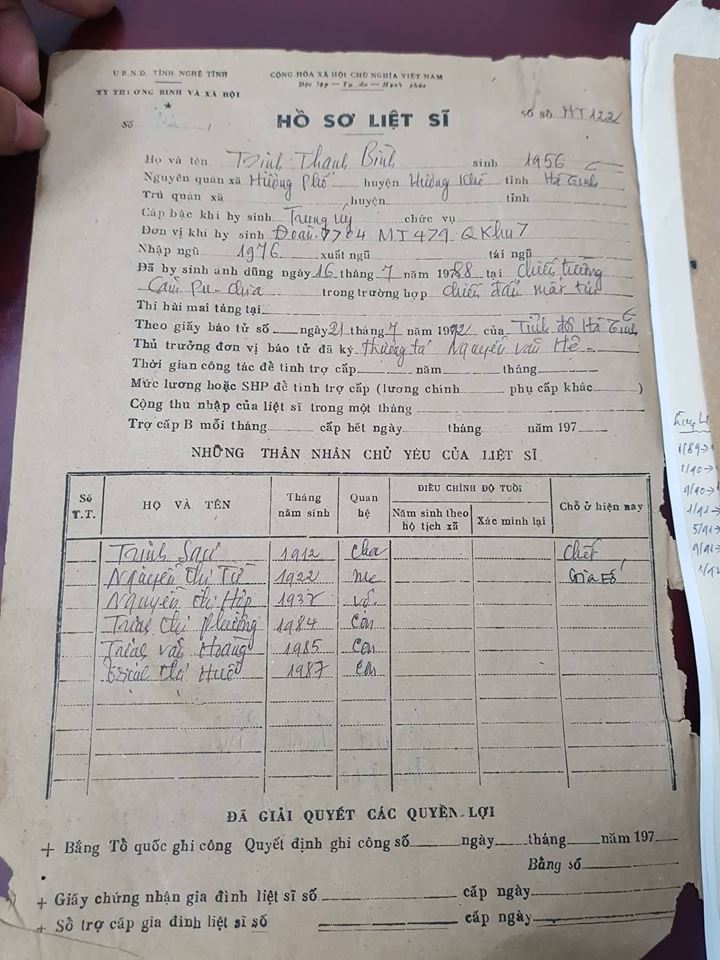 U B.N.D. TỈNH NGHỆ TĨNH
CỘNG HÒA XÃ HỘI CHỦ NGHĨA VIỆT NAM
TY THƯƠNG BINH VÀ XÃ HỘI
Độc lập — Tự do — Hạnh phúc
Số
HỒ SƠ LIỆT SĨ
Số sổ HT122
Họ và tên Trịnh Thanh Bình sinh 1956
Nguyên quán xã Hương Phố huyện Hương Khê tỉnh Hà Tĩnh
Trú quán xã huyện tỉnh
Cấp bậc khi hy sinh Trung úy chức vụ
Đơn vị khi hy sinh Đoàn 7704 MT479 QKhu7
Nhập ngũ 1976 xuất ngũ tái ngũ
Đã hy sinh anh dũng ngày 16 tháng 7 năm 1988 tại chiến trường
Căm Pu-chia trong trường hợp chiến đấu mất tích
Thi hài mai táng tại
Theo giấy báo tử số ngày 21 tháng 7 năm 1992 của Tỉnh đội Hà Tĩnh
Thủ trưởng đơn vị báo tử đã ký thượng tá Nguyễn văn
Thời gian công tác để tính trợ cấp năm tháng
Mức lương hoặc SHP để tính trợ cấp (lương chính phụ cấp khác )
Cộng thu nhập của liệt sĩ trong một tháng
Trợ cấp B mỗi tháng cấp hết ngày tháng năm 197
NHỮNG THÂN NHÂN CHỦ YẾU CỦA LIỆT SĨ
Số T.T.
HỌ VÀ TÊN
Tháng năm sinh
Quan hệ
ĐIỀU CHỈNH ĐỘ TUỔI
Năm sinh theo hộ tịch xã
Xác minh lại
Chỗ ở hiện nay
Trịnh 1912 cha chết
Nguyễn thị 1922 mẹ
Nguyễn thị vợ
Trịnh thị Phương 1984 con
Trịnh văn Hoàng 1985 con
Trịnh thị Huê 1987 con
ĐÃ GIẢI QUYẾT CÁC QUYỀN LỢI
+ Bằng Tổ quốc ghi công Quyết định ghi công số ngày tháng năm 197
Bằng số
+ Giấy chứng nhận gia đình liệt sĩ số cấp ngày
+ Sổ trợ cấp gia đình liệt sĩ số cấp ngày